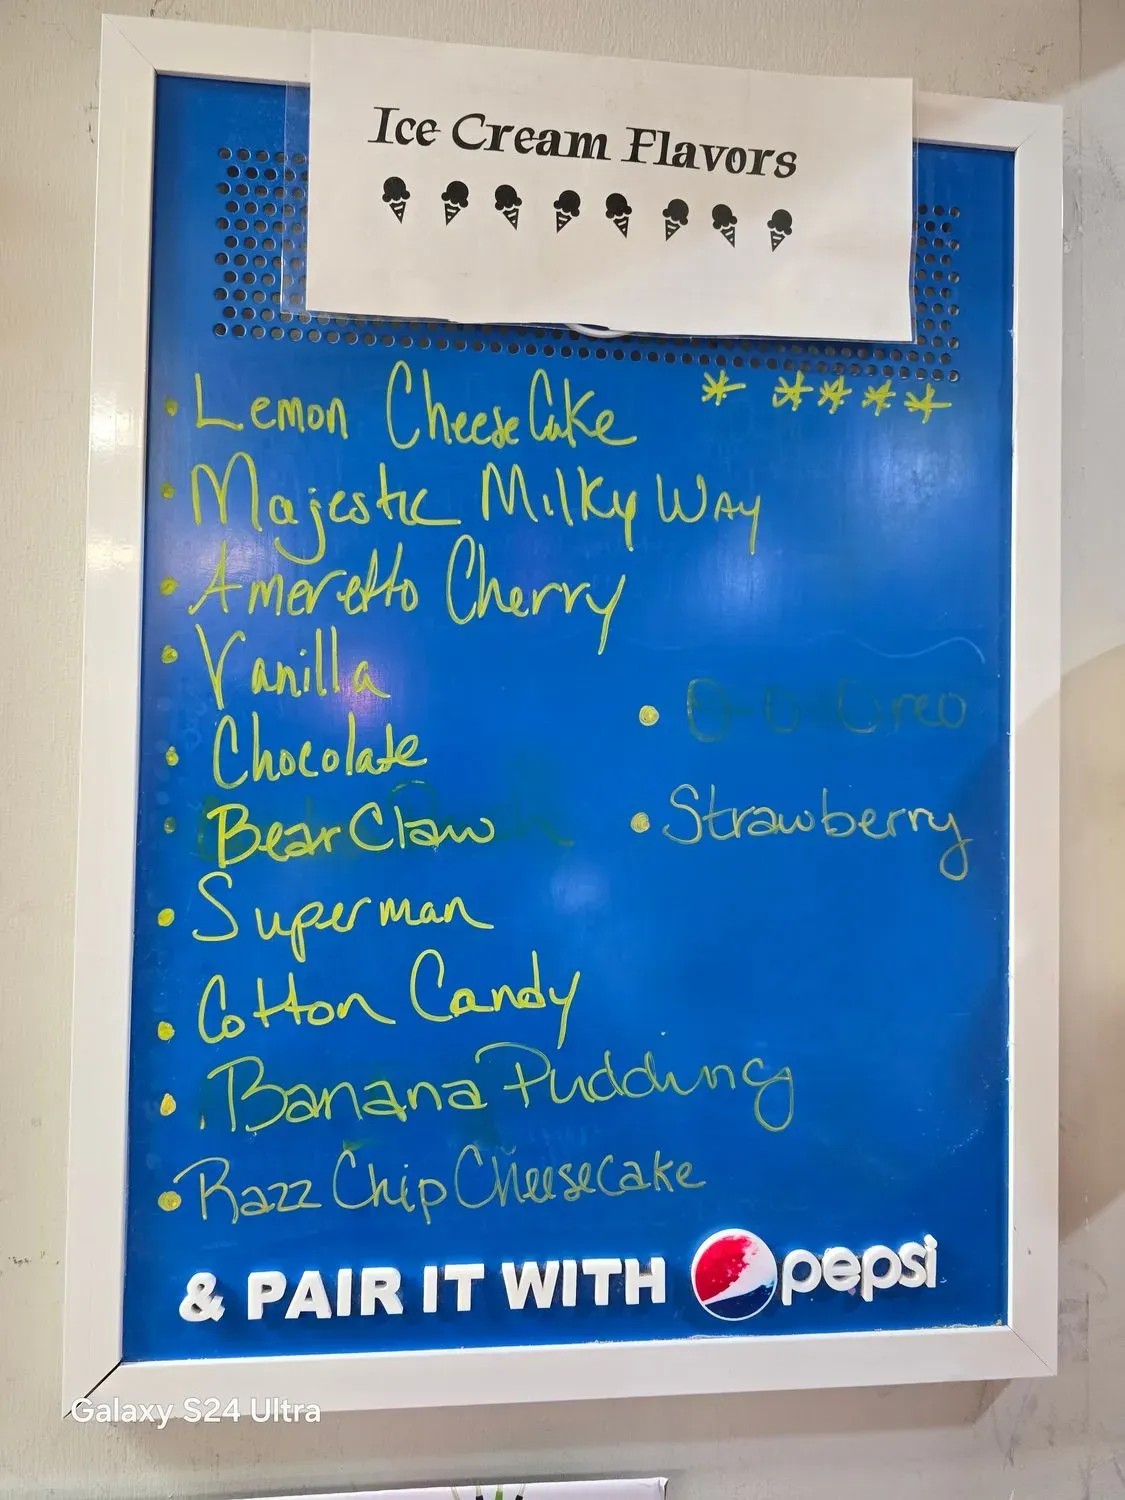 Ice Cream Flavors
* * * * *
• Lemon CheeseCake
• Majestic Milky Way
• Ameretto Cherry
• Vanilla
• Chocolate
• Bear Claw
• Superman
• Cotton Candy
• Banana Pudding
• Razz Chip Cheesecake
• Oreo
• Strawberry
& PAIR IT WITH pepsi
Galaxy S24 Ultra